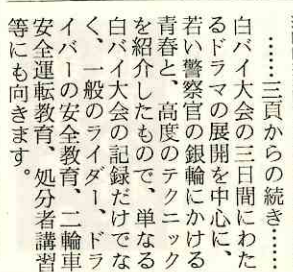 ……三頁からの続き……
白バイ大会の三日間にわた
るドラマの展開を中心に、
若い警察官の銀輪にかける
青春と、高度のテクニック
を紹介したもので、単なる
白バイ大会の記録だけでな
く、一般のライダー、ドラ
イバーの安全教育、二輪車
安全運転教育、処分者講習
等にも向きます。